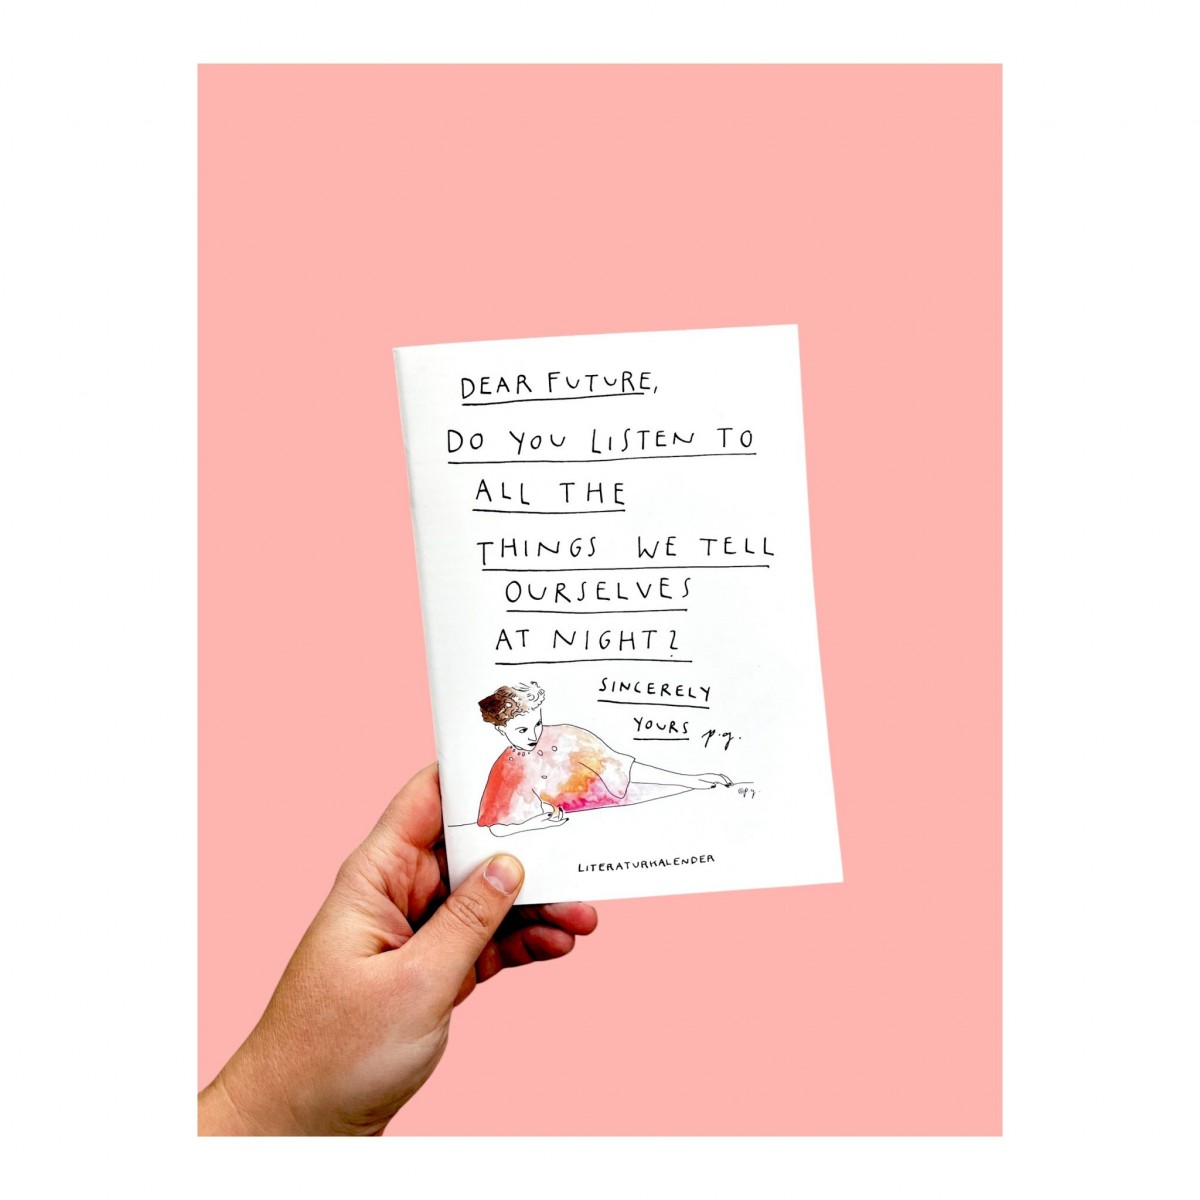 DEAR FUTURE,
DO YOU LISTEN TO
ALL THE
THINGS WE TELL
OURSELVES
AT NIGHT?
SINCERELY
YOURS p.g.
©p.g.
LITERATURKALENDER